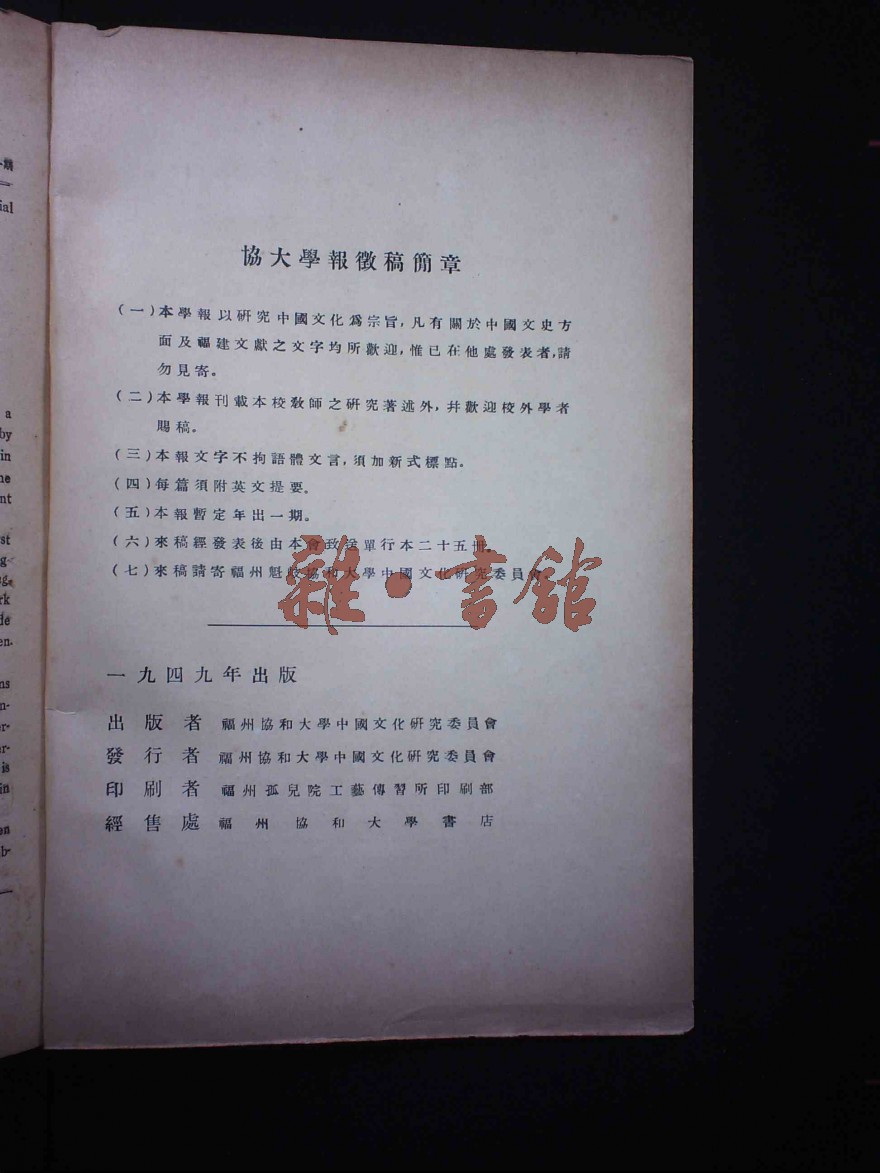 協大學報徵稿簡章
(一)本學報以研究中國文化爲宗旨,凡有關於中國文史方
面及福建文獻之文字均所歡迎,惟已在他處發表者,請
勿見寄。
(二)本學報刊載本校教師之研究著述外,幷歡迎校外學者
賜稿。
(三)本報文字不拘語體文言,須加新式標點。
(四)每篇須附英文提要。
(五)本報暫定年出一期。
(六)來稿經發表後由本會致送單行本二十五冊。
(七)來稿請寄福州魁岐協和大學中國文化研究委員會
雜·書館
一九四九年出版
出版者 福州協和大學中國文化研究委員會
發行者 福州協和大學中國文化研究委員會
印刷者 福州孤兒院工藝傳習所印刷部
經售處 福州協和大學書店
ial
a
by
in
ne
nt
st
g-
rk
de
en.
ns
n-
er-
ar-
is
in
en
b-